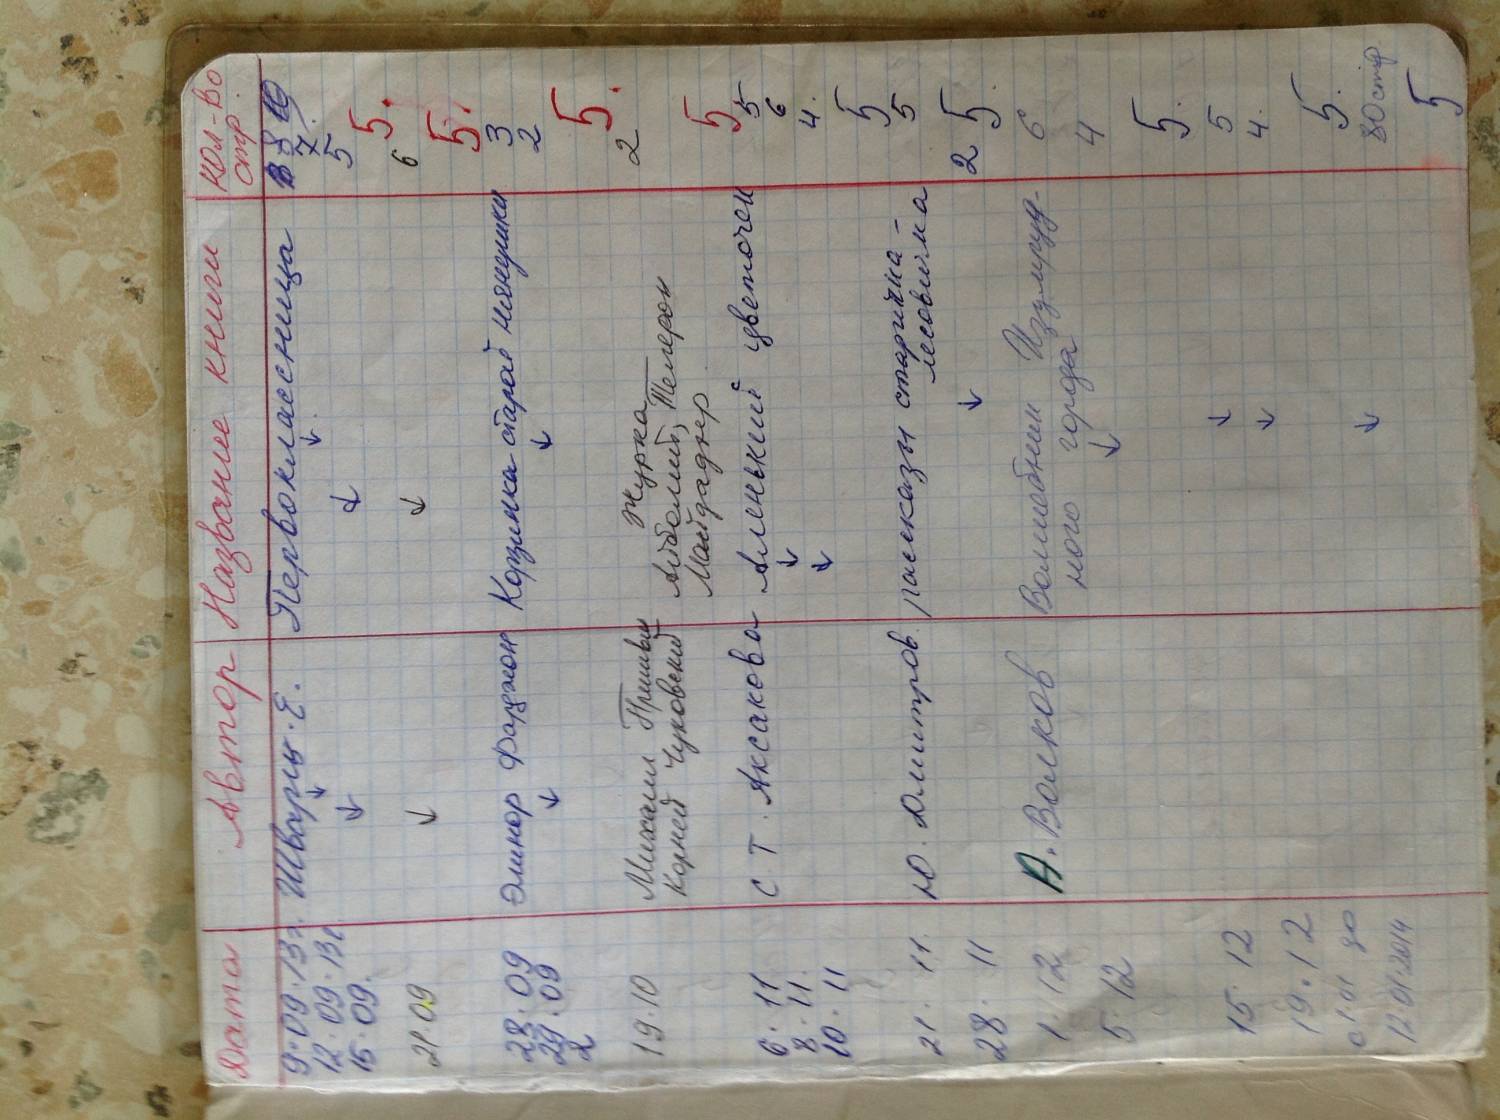 Дата Автор Название книги Кол-во стр.
9.09.13г. Шварц. Е. Первоклассница
12.09.13г ↓ ↓ 7
15.09. ↓ ↓ 5
5.
21.09 ↓ ↓ 6
5.
28.09 Элинор Фарджон Корзинка старой нянюшки 3
29.09 ↓ ↓ 2
2
5.
19.10 Михаил Пришвин Журка 2
Корней Чуковский Айболит, Телефон
Мойдадыр
5
6.11 С Т. Аксакова Аленький цветочек 5
8.11. ↓ 6
10.11 ↓ 4.
5
21.11. Ю. Дмитров. рассказы старичка- 5
лесовичка
28.11 ↓ 2
5.
1.12 А. Волков Волшебник Изумруд- 6
ного города
5.12 ↓ 4
5.
15.12 ↓ 5
↓ 4.
19.12
5.
с 1.01 до ↓ 80 стр.
12.01.2014
5